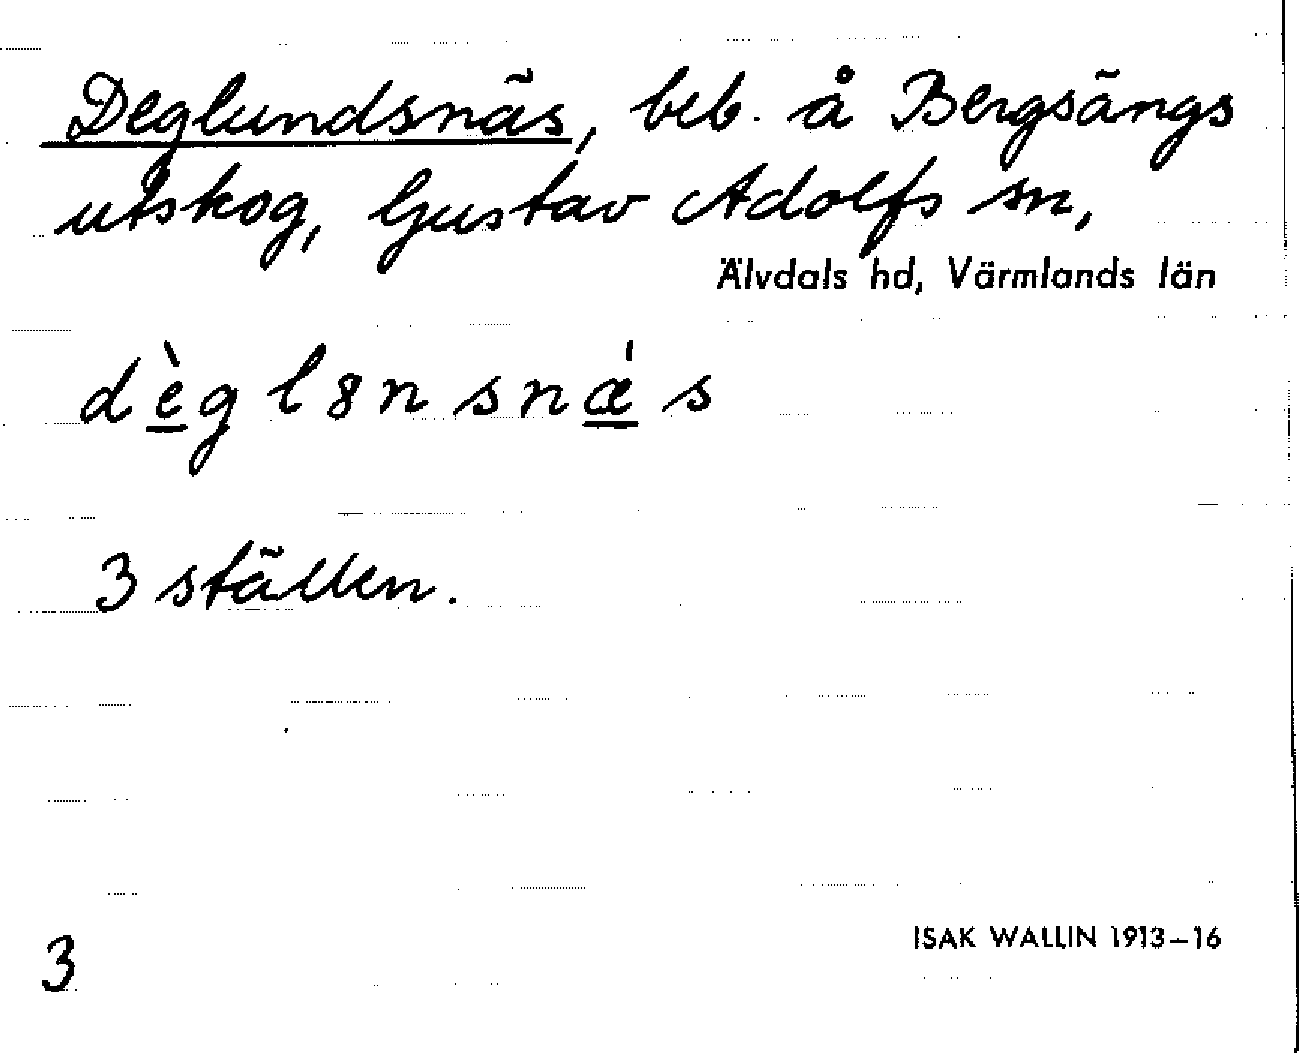 Deglundsnäs, beb. å Bergsängs
utskog, Gustav Adolfs sn,
Älvdals hd, Värmlands län
dèglȣnsnǽs
3 ställen.
3
ISAK WALLIN 1913–16